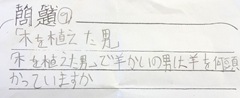 問題⑦
「木を植えた男」
「木を植えた男」で羊かいの男は羊を何頭
かっていますか